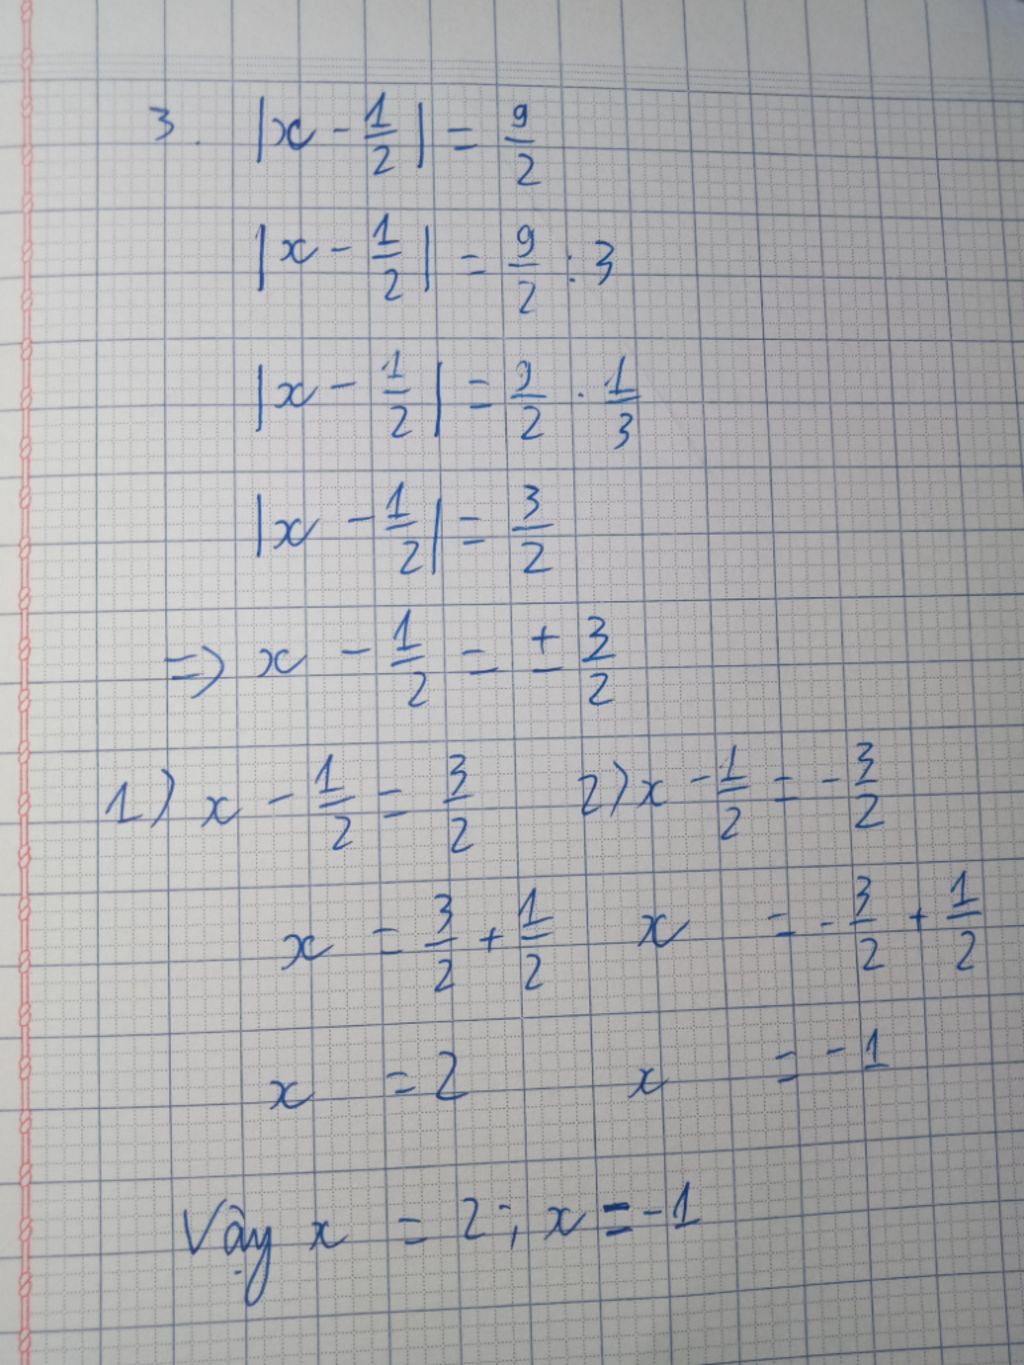 3. |x - 1/2| = 9/2
|x - 1/2| = 9/2 : 3
|x - 1/2| = 9/2 . 1/3
|x - 1/2| = 3/2
=> x - 1/2 = ± 3/2
1) x - 1/2 = 3/2 2) x - 1/2 = - 3/2
x = 3/2 + 1/2 x = - 3/2 + 1/2
x = 2 x = - 1
Vậy x = 2 ; x = - 1